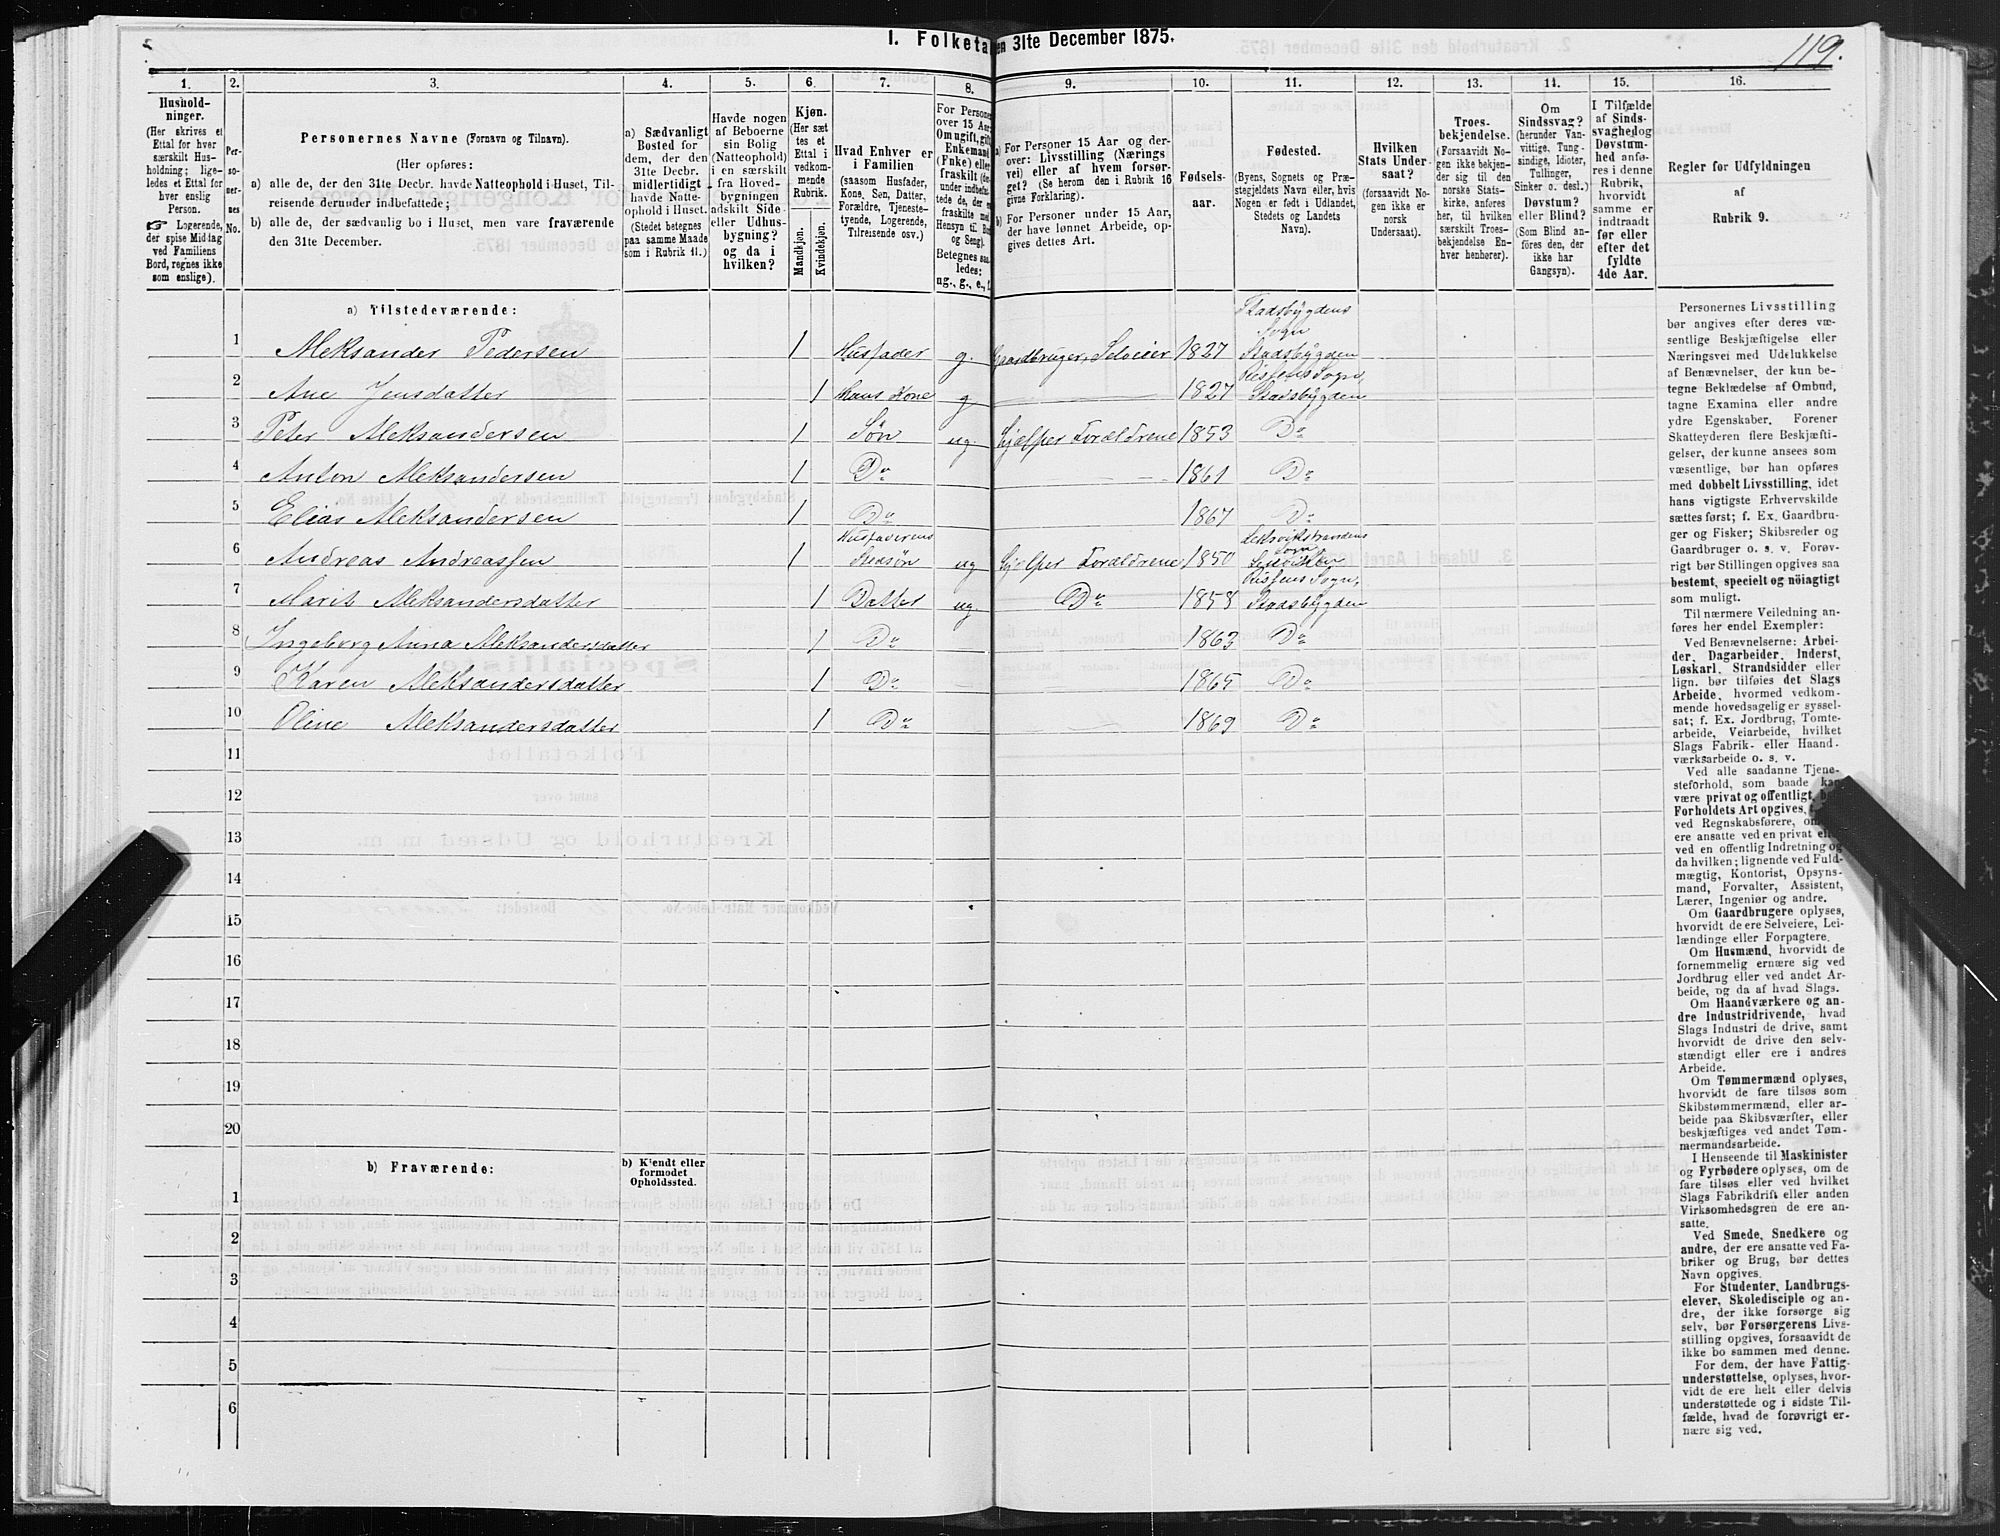 1. Folketa en 31te December 1875.
119.
1. 2. 3. 4. 5. 6. 7. 8. 9. 10. 11. 12. 13. 14. 15. 16.
Hushold-
ninger.
(Her skrives et
Ettal for hver
særskilt Hus-
holdning; lige-
ledes et Ettal for
hver enslig
Person.
☞ Logerende,
der spise Middag
ved Familiens
Bord, regnes ikke
som enslige).
Per-
so-
ner-
nes
No.
Personernes Navne (Fornavn og Tilnavn).
(Her opføres:
a) alle de, der den 31te Decbr. havde Natteophold i Huset, Til-
reisende derunder indbefattede;
b) alle de, der sædvanlig bo i Huset, men vare fraværende
den 31te December.
a) Sædvanligt
Bosted for
dem, der den
31te Decbr.
midlertidigt
havde Natte-
ophold i Huset.
(Stedet betegnes
paa samme Maade
som i Rubrik 11.)
Havde nogen
af Beboerne
sin Bolig
(Natteophold)
i en særskilt
fra Hoved-
bygningen
adskilt Side-
eller Udhus-
bygning?
og da i
hvilken?
Kjøn.
(Her sæt
tes et
Ettal i
vedkom-
mende
Rubrik.
Mandkjøn.
Kvindekjøn.
Hvad Enhver er
i Familien
(saasom Husfader,
Kone, Søn, Datter,
Forældre, Tjeneste-
tyende, Logerende,
Tilreisende osv.)
For Personer
over 15 Aar:
Om ugift, gift,
Enkemand
(Fnke) eller
fraskilt (der-
under indbefat-
tede de, der ere
fraskilte med
Hensyn til Bord
og Seng).
Betegnes saa-
ledes:
ng., g., e., f.
a) For Personer 15 Aar og der-
over: Livsstilling (Nærings-
vei) eller af hvem forsør-
get? (Se herom den i Rubrik 16
givne Forklaring).
b) For Personer under 15 Aar,
der have lønnet Arbeide, op-
gives dettes Art.
Fødsels-
aar.
Fødested.
(Byens, Sognets og Præ-
stegjeldets Navn eller, hvis
Nogen er født i Udlandet,
Stedets og Landets
Navn).
Hvilken
Stats Under-
saat?
(forsaavidt No-
gen ikke er
norsk
Undersaat).
Troes-
bekjendelse.
(Forsaavidt No-
gen ikke bekjen-
der sig til den
norske Stats-
kirke, anføres
her, til hvilken
særskilt Troes-
bekjendelse En-
hver henhører).
Om
Sindssvag?
(herunder Van-
vittige, Tung-
sindige, Idioter,
Tullinger,
Sinker o. desl.)
Døvstum?
eller Blind?
(Som Blind an-
føres den, der
ikke har
Gangsyn).
I Tilfælde
af Sinds-
svaghed og
Døvstum-
hed anfø-
res i denne
Rubrik,
hvorvidt
samme er
indtraadt
før eller
efter det
fyldte
4de Aar.
Regler for Udfyldningen
af
Rubrik 9.
a) Tilstedeværende:
1 Aleksander Pedersen 1 Husfader g. Gaardbruger, Selveier 1827 Stadsbygdens Sogn Stadsbygden
2 Ane Jensdatter 1 Hans Kone g 1827 Risfens Sogn, Stadsbygden
3 Peter Aleksandersen 1 Søn ug. Hjælper Forældrene 1853 Do
4 Anton Aleksandersen 1 Do 1861 Do
5 Elias Aleksandersen 1 Do 1867 Do
6 Andreas Andreassen 1 Husfaderens Stedsøn ug Hjælper Forældrene 1850 Leksvikstrandens Sogn
7 Marit Aleksandersdatter 1 Datter ug. Do 1858 Risfens Sogn, Stadsbygden
8 Ingeborg Anna Aleksandersdatter 1 Do 1863 Do
9 Karen Aleksandersdatter 1 Do 1865 Do
10 Oline Aleksandersdatter 1 Do 1869 Do
11
12
13
14
15
16
17
18
19
20
b) Fraværende:
b) Kjendt eller
formodet
Opholdssted.
1
2
3
4
5
6
Personernes Livsstilling
bør angives efter deres væ-
sentlige Beskjæftigelse eller
Næringsvei med Udelukkelse
af Benævnelser, der kun be-
tegne Beklædelse af Ombud,
tagne Examina eller andre
ydre Egenskaber. Forener
Skatteyderen flere Beskjæfti-
gelser, der kunne ansees som
væsentlige, bør han opføres
med dobbelt Livsstilling, idet
hans vigtigste Erhvervskilde
sættes først; f. Ex. Gaardbru-
ger og Fisker; Skibsreder og
Gaardbruger o. s. v. Forøv-
rigt bør Stillingen opgives saa
bestemt, specielt og nöiagtigt
som muligt.
Til nærmere Veiledning an-
føres her endel Exempler:
Ved Benævnelserne: Arbei-
der, Dagarbeider, Inderst,
Løskarl, Strandsidder eller
lign. bør tilføies det Slags
Arbeide, hvormed vedkom-
mende hovedsagelig er syssel-
sat; f. Ex. Jordbrug, Tomte-
arbeide, Veiarbeide, hvilket
Slags Fabrik- eller Haand-
værksarbeide o. s. v.
Ved alle saadanne Tjene-
steforhold, som baade kan
være privat og offentligt, bør
Forholdets Art opgives,
ved Regnskabsførere, om
ere ansatte ved en privat eller
ved en offentlig Indretning og
da hvilken; lignende ved Fuld-
mægtig, Kontorist, Opsyns-
mand, Forvalter, Assistent,
Lærer, Ingeniør og andre.
Om Gaardbrugere oplyses,
hvorvidt de ere Selveiere, Lei-
lændinge eller Forpagtere.
Om Husmænd, hvorvidt de
fornemmelig ernære sig ved
Jordbrug eller ved andet Ar-
beide, og da af hvad Slags.
Om Haandværkere og an-
dre Industridrivende, hvad
Slags Industri de drive, samt
hvorvidt de drive den selv-
stændigt eller ere i andres
Arbeide.
Om Tømmermænd oplyses,
hvorvidt de fare tilsøs som
Skibstømmermænd, eller ar-
beide paa Skibsværfter, eller
beskjæftiges ved andet Tøm-
mermandsarbeide.
I Henseende til Maskinister
og Fyrbødere oplyses, om de
fare tilsøs eller ved hvilket
Slags Fabrikdrift eller anden
Virksomhedsgren de ere an-
satte.
Ved Smede, Snedkere og
andre, der ere ansatte ved Fa-
briker og Brug, bør dettes
Navn opgives.
For Studenter, Landbrugs-
elever, Skoledisciple og an-
dre, der ikke forsørge sig
selv, bør Forsørgerens Livs-
stilling opgives, forsaavidt de
ikke bo sammen med denne.
For dem, der have Fattig-
understøttelse, oplyses, hvor-
vidt de ere helt eller delvis
understøttede og i sidste Til-
fælde, hvad de forøvrigt er-
nære sig ved.